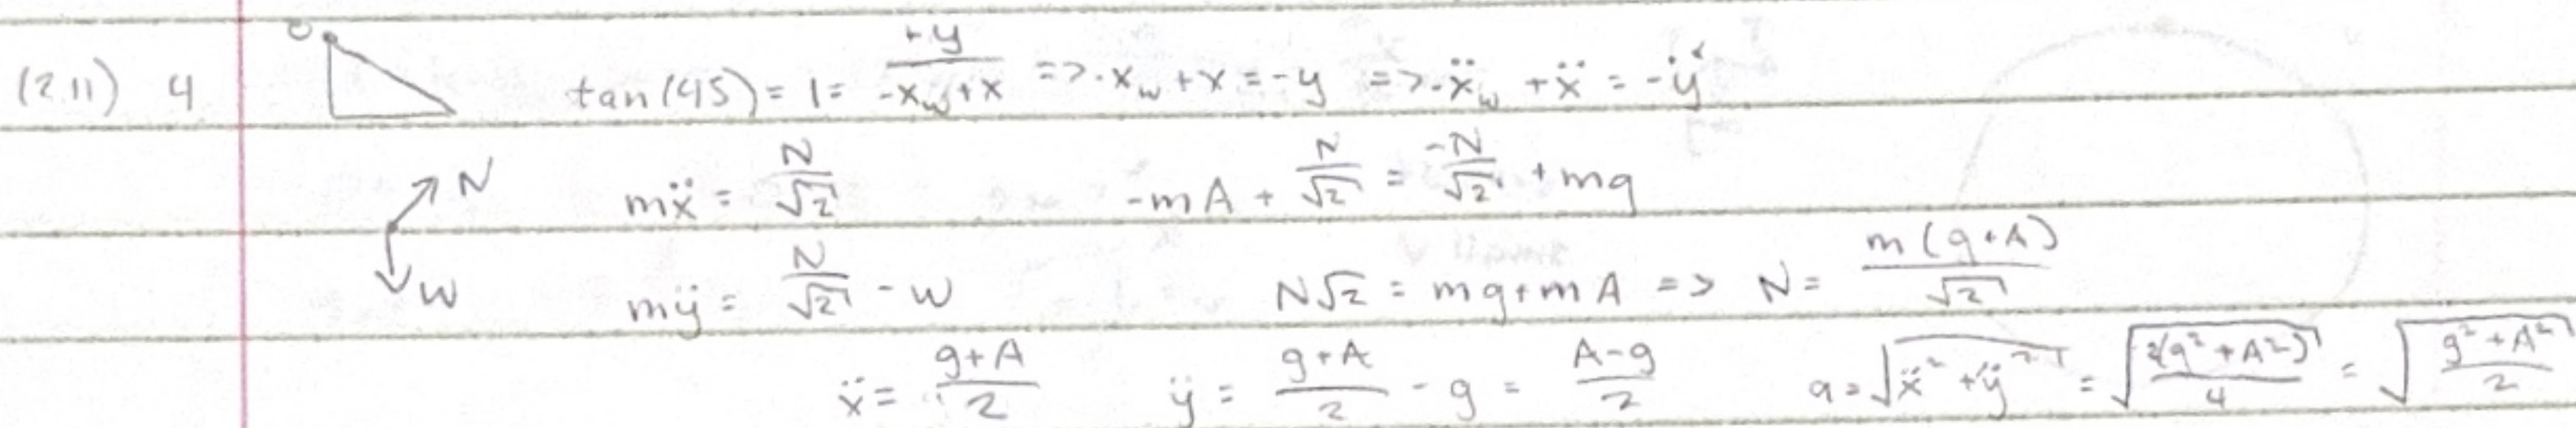 (2.11) 4 tan(45) = 1 = +y/(-x_w + x) => -x_w + x = -y => -ẍ_w + ẍ = -ÿ
N mẍ = N/√2 -mA + N/√2 = -N/√2 + mg
W mÿ = N/√2 - W N√2 = mg + mA => N = m(g+A)/√2
ẍ = (g+A)/2 ÿ = (g+A)/2 - g = (A-g)/2 a = √(ẍ² + ÿ²) = √(2(g² + A²)/4) = √((g² + A²)/2)